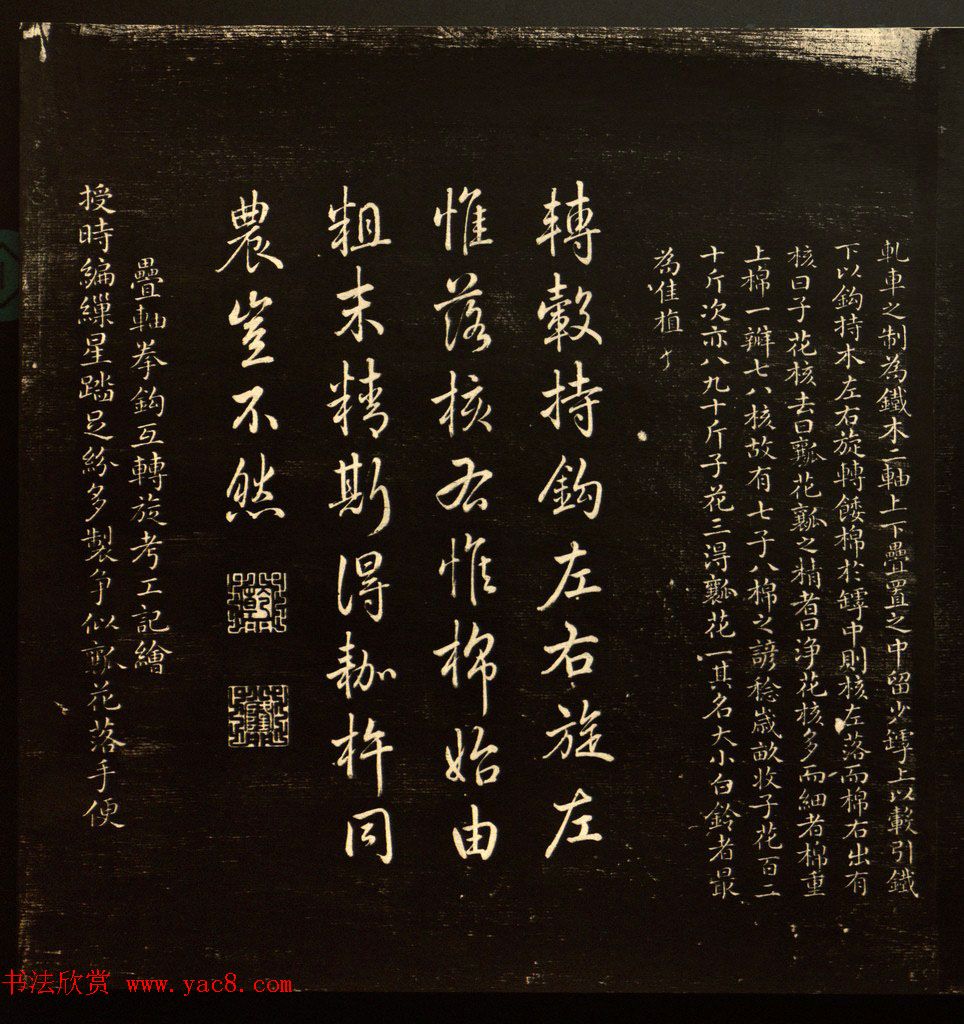 軋車之制為鐵木二軸上下疊置之中留少罅上以轂引鐵
下以鈎持木左右旋轉餧棉於罅中則核左落而棉右出有
核曰子花核去曰瓤花瓤之精者曰净花核多而細者棉重
上棉一瓣七八核故有七子八棉之諺稔歲畝收子花百二
十斤次亦八九十斤子花三得瓤花一其名大小白鈴者最
為佳植
轉轂持鈎左右旋左
惟落核右惟棉始由
粗末精斯得耞杵同
農豈不然
疊軸拳鈎互轉旋考工記繪
授時編繅星踏足紛多製争似瓤花落手便
书法欣赏 www.yac8.com